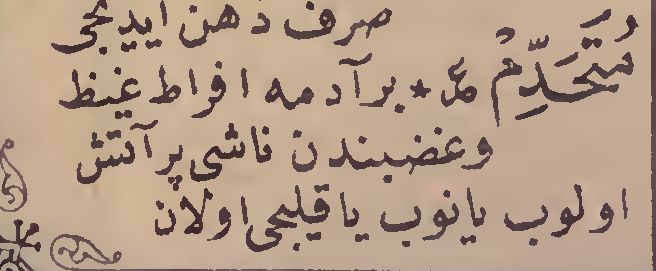 صرف ذهن ايديجى
مُتَحَدِّمْ ع * بر آدمه افراط غيظ
وغضبندن ناشى پر آتش
اولوب يانوب ياقيلجى اولان